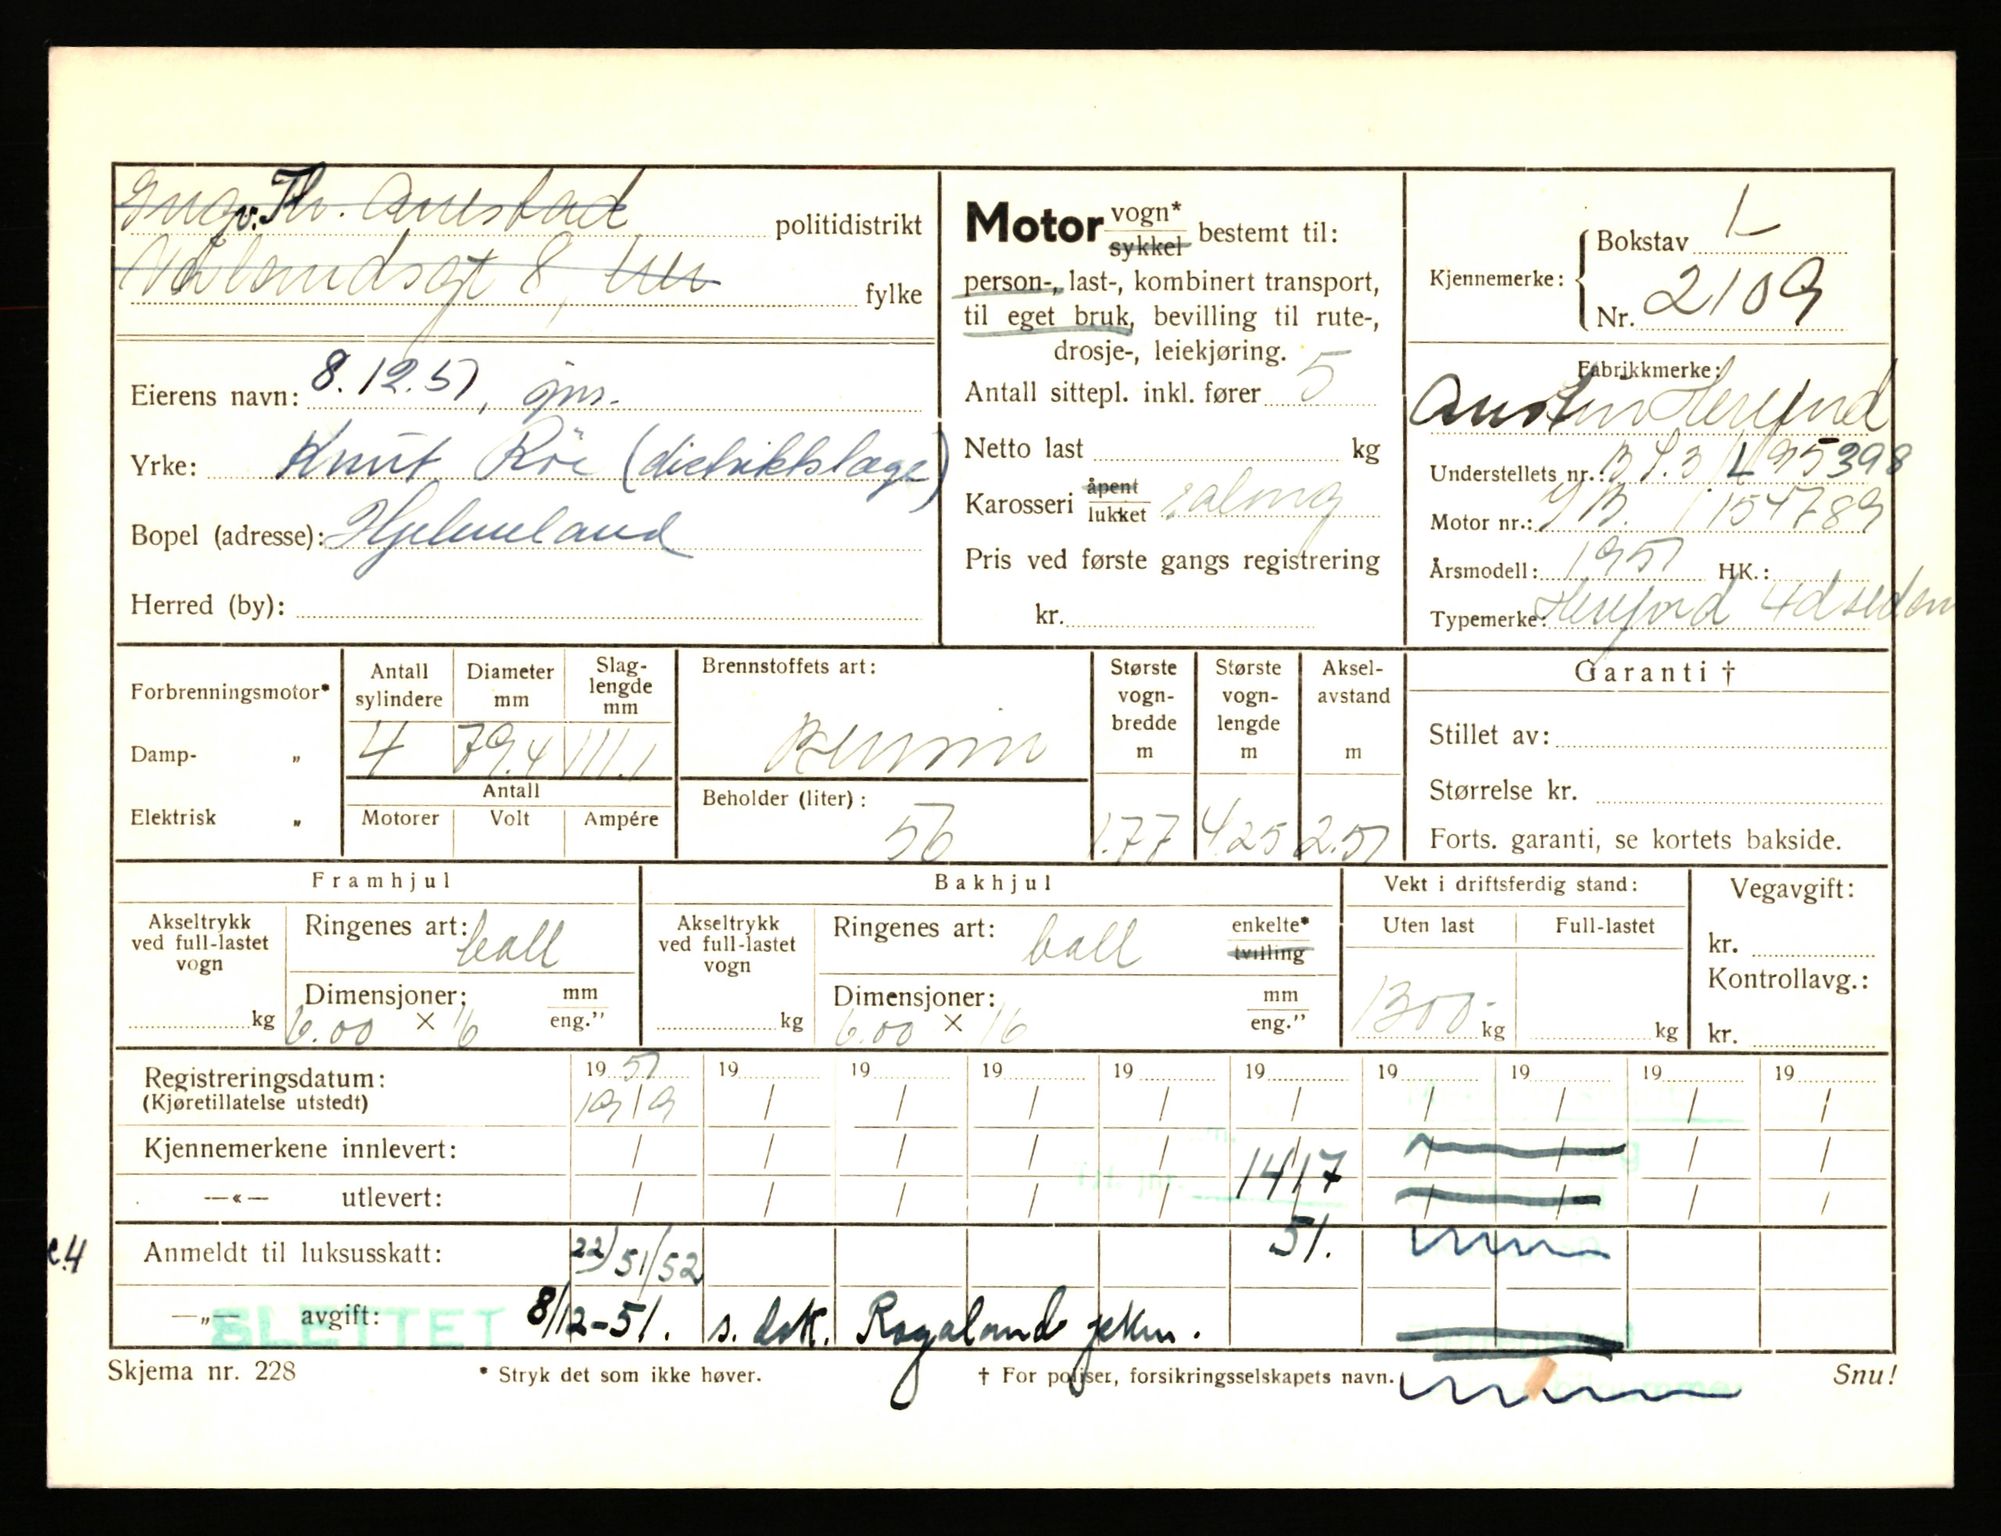 Ingv. Th. Austad politidistrikt
8, fylke
Eierens navn: 8.12.51, gjns.
Yrke: Knut Röe (distriktslæge)
Bopel (adresse): Hjelmeland
Herred (by):
Motor vogn* sykkel bestemt til:
person-, last-, kombinert transport,
til eget bruk, bevilling til rute-,
drosje-, leiekjøring.
Antall sittepl. inkl. fører 5
Netto last kg
Karosseri åpent lukket
Pris ved første gangs registrering
kr.
Kjennemerke: Bokstav L
Nr. 2109
Fabrikkmerke:
Austin Hereford
Understellets nr.: 395398
Motor nr.: 154789
Årsmodell: 1951 HK.:
Typemerke: Hereford 4d sedan
Forbrenningsmotor*
Damp- „
Elektrisk „
Antall sylindere Diameter mm Slag-lengde mm
4 79.4 111.1
Antall
Motorer Volt Ampére
Brennstoffets art:
Bensin
Beholder (liter):
56
Største vogn-bredde m Største vogn-lengde m Aksel-avstand m
1.77 4.25 2.51
Garanti †
Stillet av:
Størrelse kr.
Forts. garanti, se kortets bakside.
Framhjul
Akseltrykk ved full-lastet vogn
kg
Ringenes art: ball
Dimensjoner: mm eng.”
6.00 × 16
Bakhjul
Akseltrykk ved full-lastet vogn
kg
Ringenes art: ball enkelte* tvilling
Dimensjoner: mm eng.”
6.00 × 16
Vekt i driftsferdig stand:
Uten last Full-lastet
1300.- kg kg
Vegavgift:
kr.
Kontrollavg.:
kr.
Registreringsdatum: 1951 19 19 19 19 19 19 19 19 19
(Kjøretillatelse utstedt) 19/9 / / / / / / / / /
Kjennemerkene innlevert: / / / / / / / / / /
14/7
—«— utlevert: / / / / / / / / /
51.
Anmeldt til luksusskatt: 22/51/52
e.4
—„— avgift: 8/12-51. s. dok. Rogaland
SLETTET
Skjema nr. 228 * Stryk det som ikke høver. † For poliser, forsikringsselskapets navn. Snu!